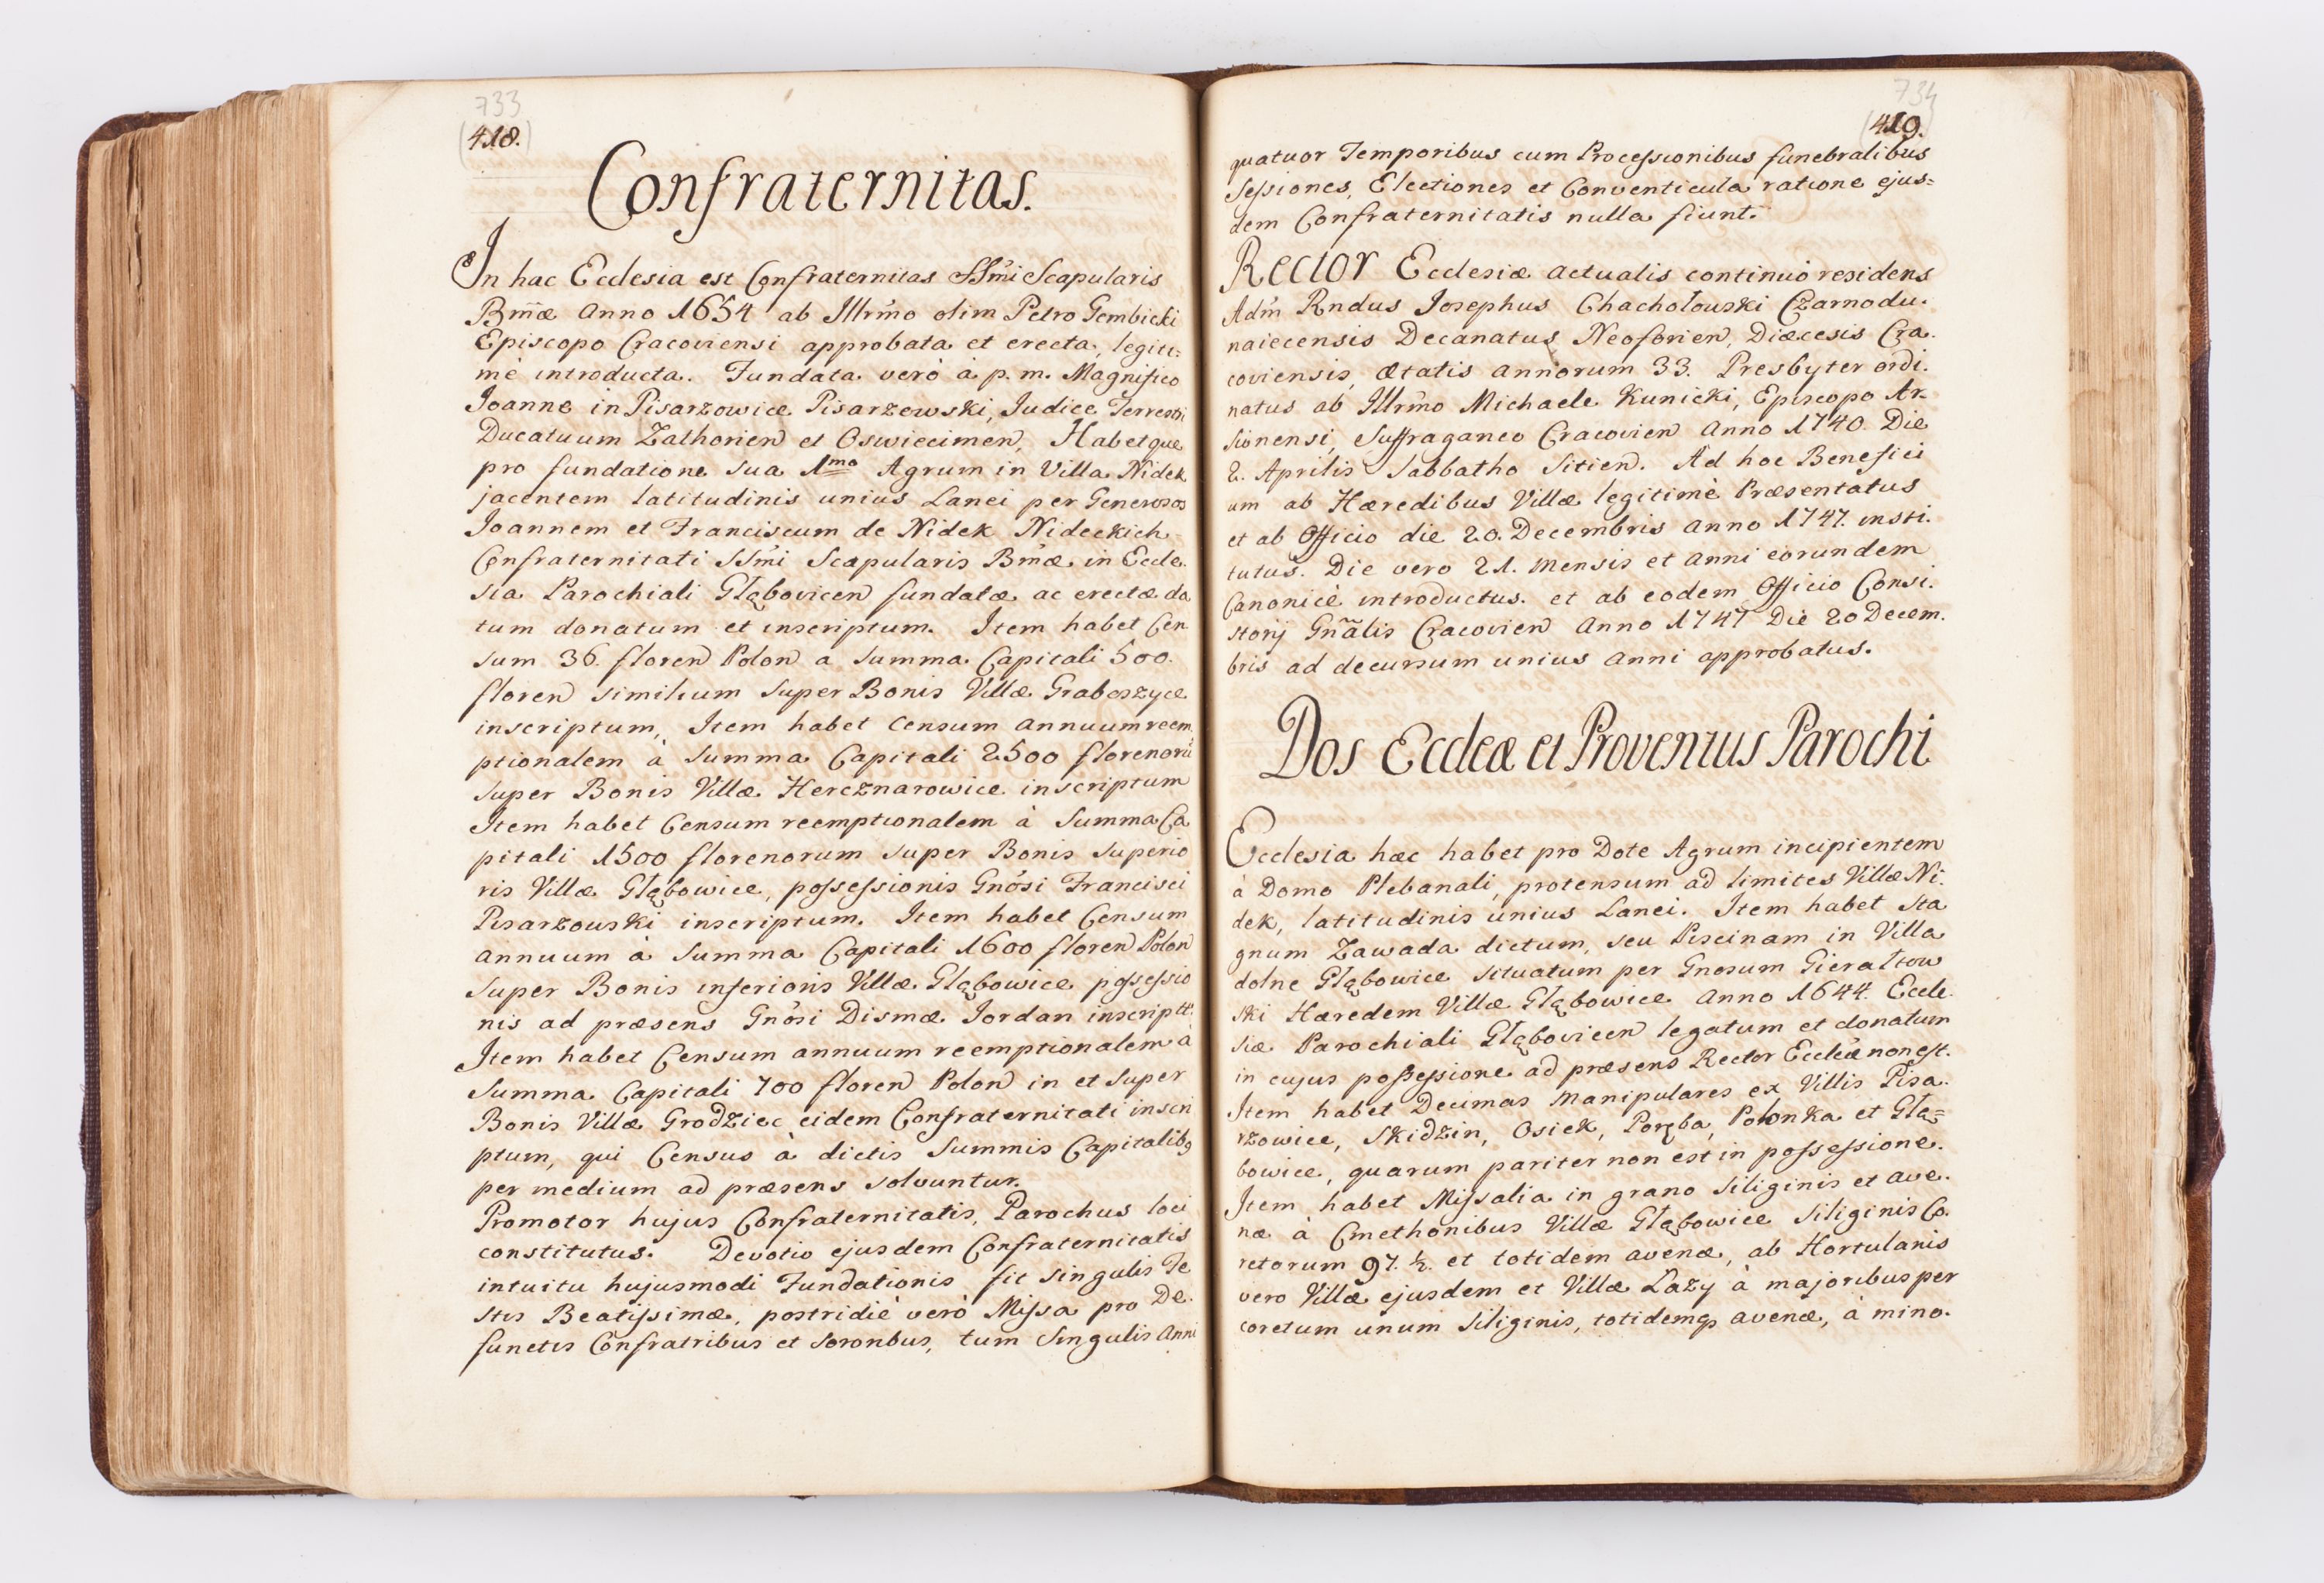 733
(418.)
Confraternitas.
In hac Ecclesia est Confraternitas SSmi Scapularis
Bmæ Anno 1654 ab Illrmo olim Petro Gembicki
Episcopo Cracoviensi approbata et erecta, legiti-
mè introducta. Fundata verò à p. m. Magnifico
Joanne in Pisarzowice Pisarzewski, Judice Terrestri
Ducatuum Zathorien et Oswiecimen, Habetque
pro fundatione sua 1mo Agrum in Villa Nidek
jacentem latitudinis unius Lanei per Generosos
Joannem et Franciscum de Nidek Nideckich
Confraternitati SSmi Scapularis Bmæ in Eccle.
sia Parochiali Głąbovicen fundatæ ac erectæ da
tum donatum et inscriptum. Item habet Cen
sum 36. floren Polon a Summa Capitali 500.
floren similium super Bonis Villæ Graboszyce
inscriptum, Item habet Censum annuum reem
ptionalem à Summa Capitali 2500 florenorū
super Bonis Villæ Hercznarowice inscriptum
Item habet Censum reemptionalem à Summa Ca
pitali 1500 florenorum super Bonis Superio
ris Villæ Głąbowice, possessionis Gnosi Francisci
Pisarzouski inscriptum. Item habet Censum
annuum à Summa Capitali 1600 floren Polon
Super Bonis inferioris Villæ Głąbowice possessio
nis ad præsens Gnosi Dismæ Jordan inscriptt.
Item habet Censum annuum reemptionalem à
Summa Capitali 700 floren Polon in et super
Bonis Villæ Grodziec eidem Confraternitati inscri
ptum, qui Census à dictis Summis Capitalibꝰ
per medium ad præsens solvuntur.
Promotor hujus Confraternitatis, Parochus loci
constitutus. Devotio ejusdem Confraternitatis
intuitu hujusmodi Fundationis fit singulis Fe
stis Beatissimæ, postridiè verò Missa pro De.
functis Confratribus et sororibus, tum Singulis Anni
734
(419.)
quatuor Temporibus cum Processionibus funebralibus
Sessiones, Electiones et Conventicula ratione ejus=
dem Confraternitatis nulla fiunt.
Rector Ecclesiæ actualis continuò residens
Adm Rndus Josephus Chachołouski Czarnodu.
naiecensis Decanatus Neoforien, Diæcesis Cra.
coviensis, ætatis annorum 33. Presbyter ordi.
natus ab Illrmo Michaele Kunicki, Episcopo Ar-
sionensi, Suffraganeo Cracovien Anno 1740. Die
2. Aprilis Sabbatho Sitien. Ad hoc Benefici
um ab Hæredibus Villæ legitimè Præsentatus
et ab Officio die 20. Decembris Anno 1747. insti.
tutus. Die vero 21. mensis et Anni eorundem
Canonicè introductus. et ab eodem Officio Consi.
storij Gnãlis Cracovien Anno 1747 Die 20 Decem.
bris ad decursum unius Anni approbatus.
Dos Eccleæ et Proventus Parochi
Ecclesia hæc habet pro Dote Agrum incipientem
à Domo Plebanali, protensum ad limites Villæ Ni.
dek, latitudinis unius Lanei. Item habet Sta
gnum Zawada dictum, seu Piscinam in Villa
dolne Głąbowice situatum per Gnosum Gierałtow
ski Hæredem Villæ Głąbowice Anno 1644. Eccle.
siæ Parochiali Głąbovicen legatum et donatum
in cujus possessione ad præsens Rector Eccleæ non est.
Item habet Decimas Manipulares ex Villis Pisa.
rzowice, Skidzin, Osiek, Poręba, Polonka et Głą=
bowice, quarum pariter non est in possessione.
Item habet Missalia in grano Siliginis et Ave.
næ à Cmethonibus Villæ Głąbowice Siliginis Co.
retorum 97. ½. et totidem avenæ, ab Hortulanis
vero Villæ ejusdem et Villæ Lazy à majoribus per
coretum unum Siliginis, totidemqs avenæ, à mino.